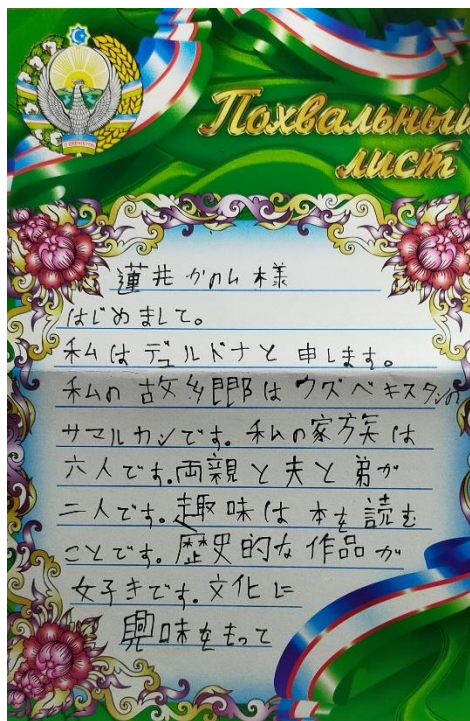 Похвальный
лист
蓮井かのん様
はじめまして。
私はデュルドナと申します。
私の故郷はウズベキスタンの
サマルカンです。私の家族は
六人です。両親と夫と弟が
二人です。趣味は本を読む
ことです。歴史的な作品が
好きです。文化に
興味をもって